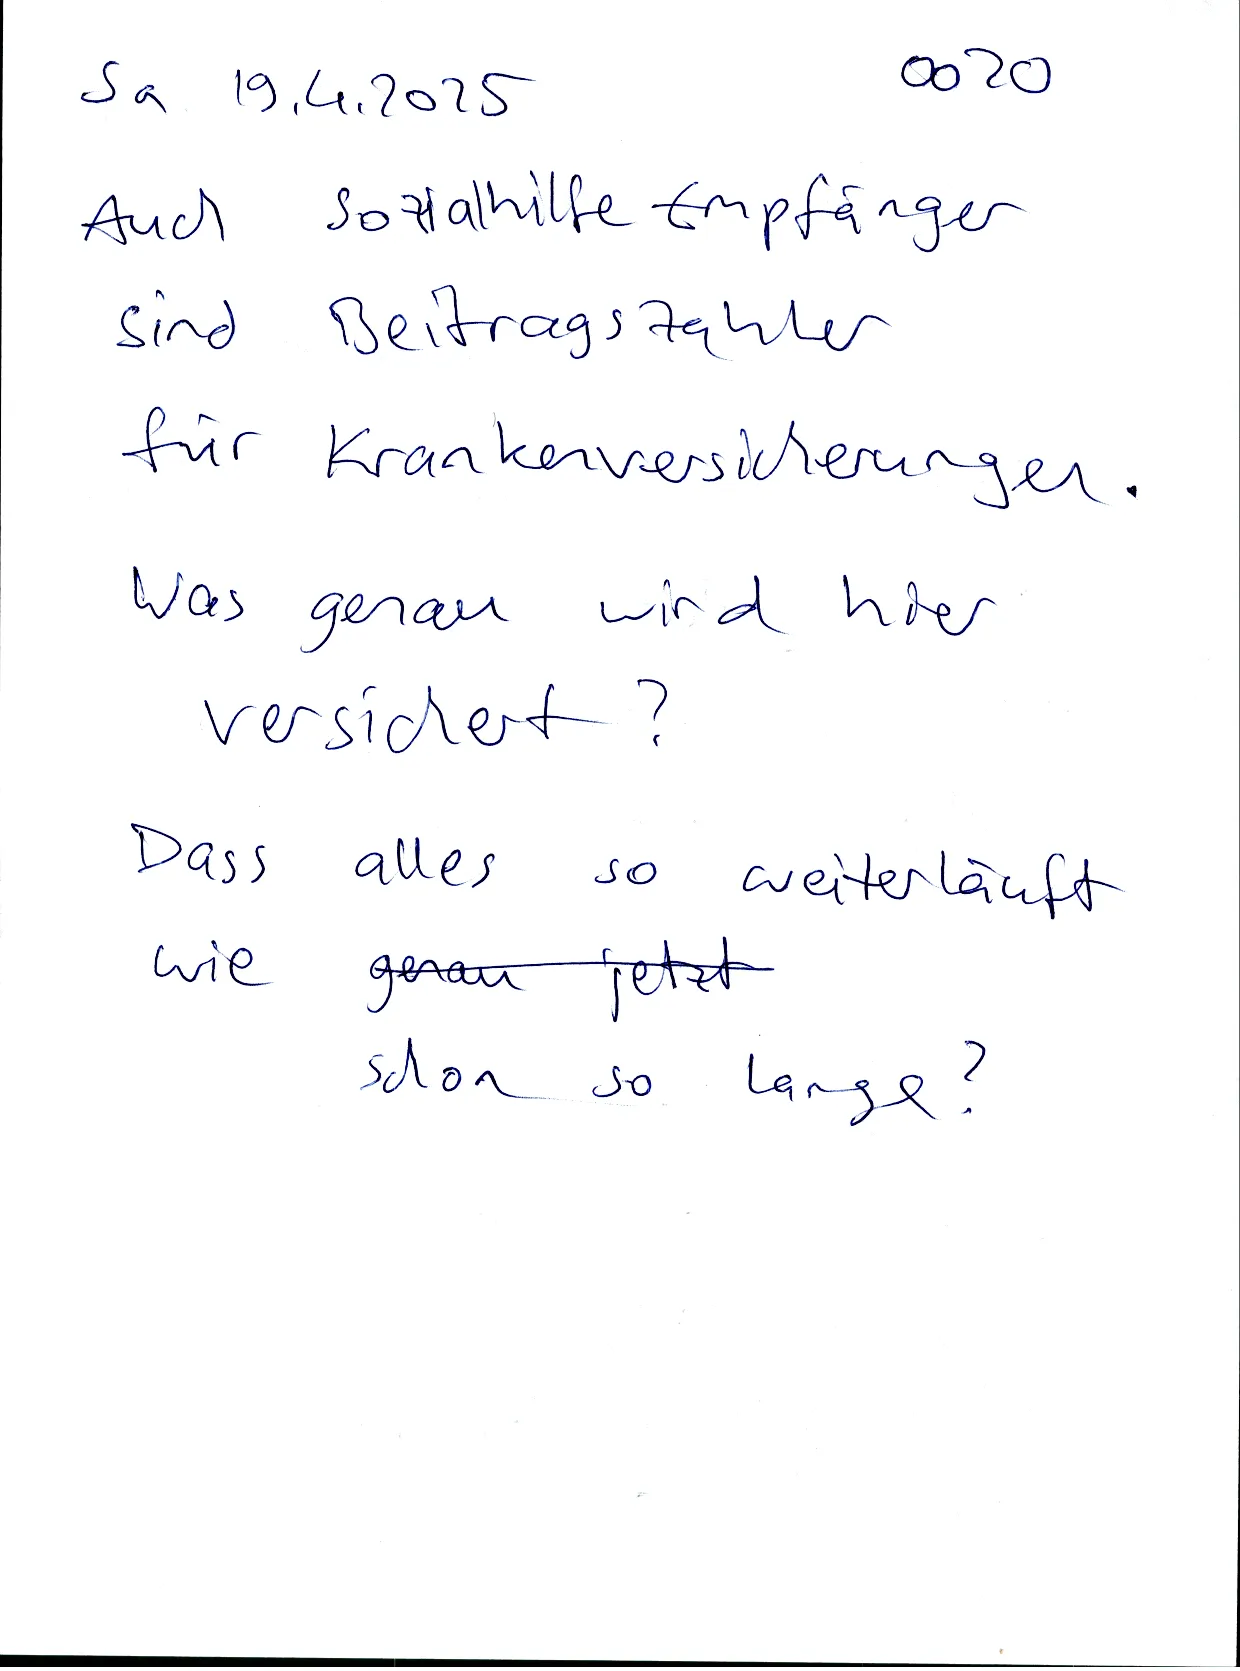 Sa 19.4.2025 0020
Auch Sozialhilfe Empfänger
sind Beitragszahler
für Krankenversicherungen.
Was genau wird hier
versichert?
Dass alles so weiterläuft
wie genau jetzt
schon so lange?